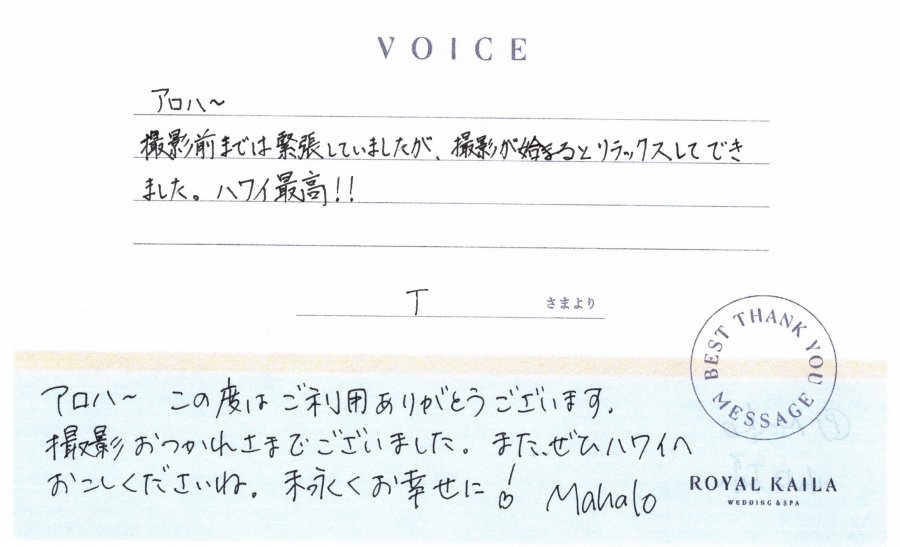 VOICE
アロハ〜
撮影前までは緊張していましたが、撮影が始まるとリラックスしてでき
ました。ハワイ最高!!
T さまより
BEST THANK YOU MESSAGE
アロハ〜 この度はご利用ありがとうございます。
撮影おつかれさまでございました。また、ぜひハワイへ
おこしくださいね。末永くお幸せに! Mahalo
ROYAL KAILA
WEDDING & SPA